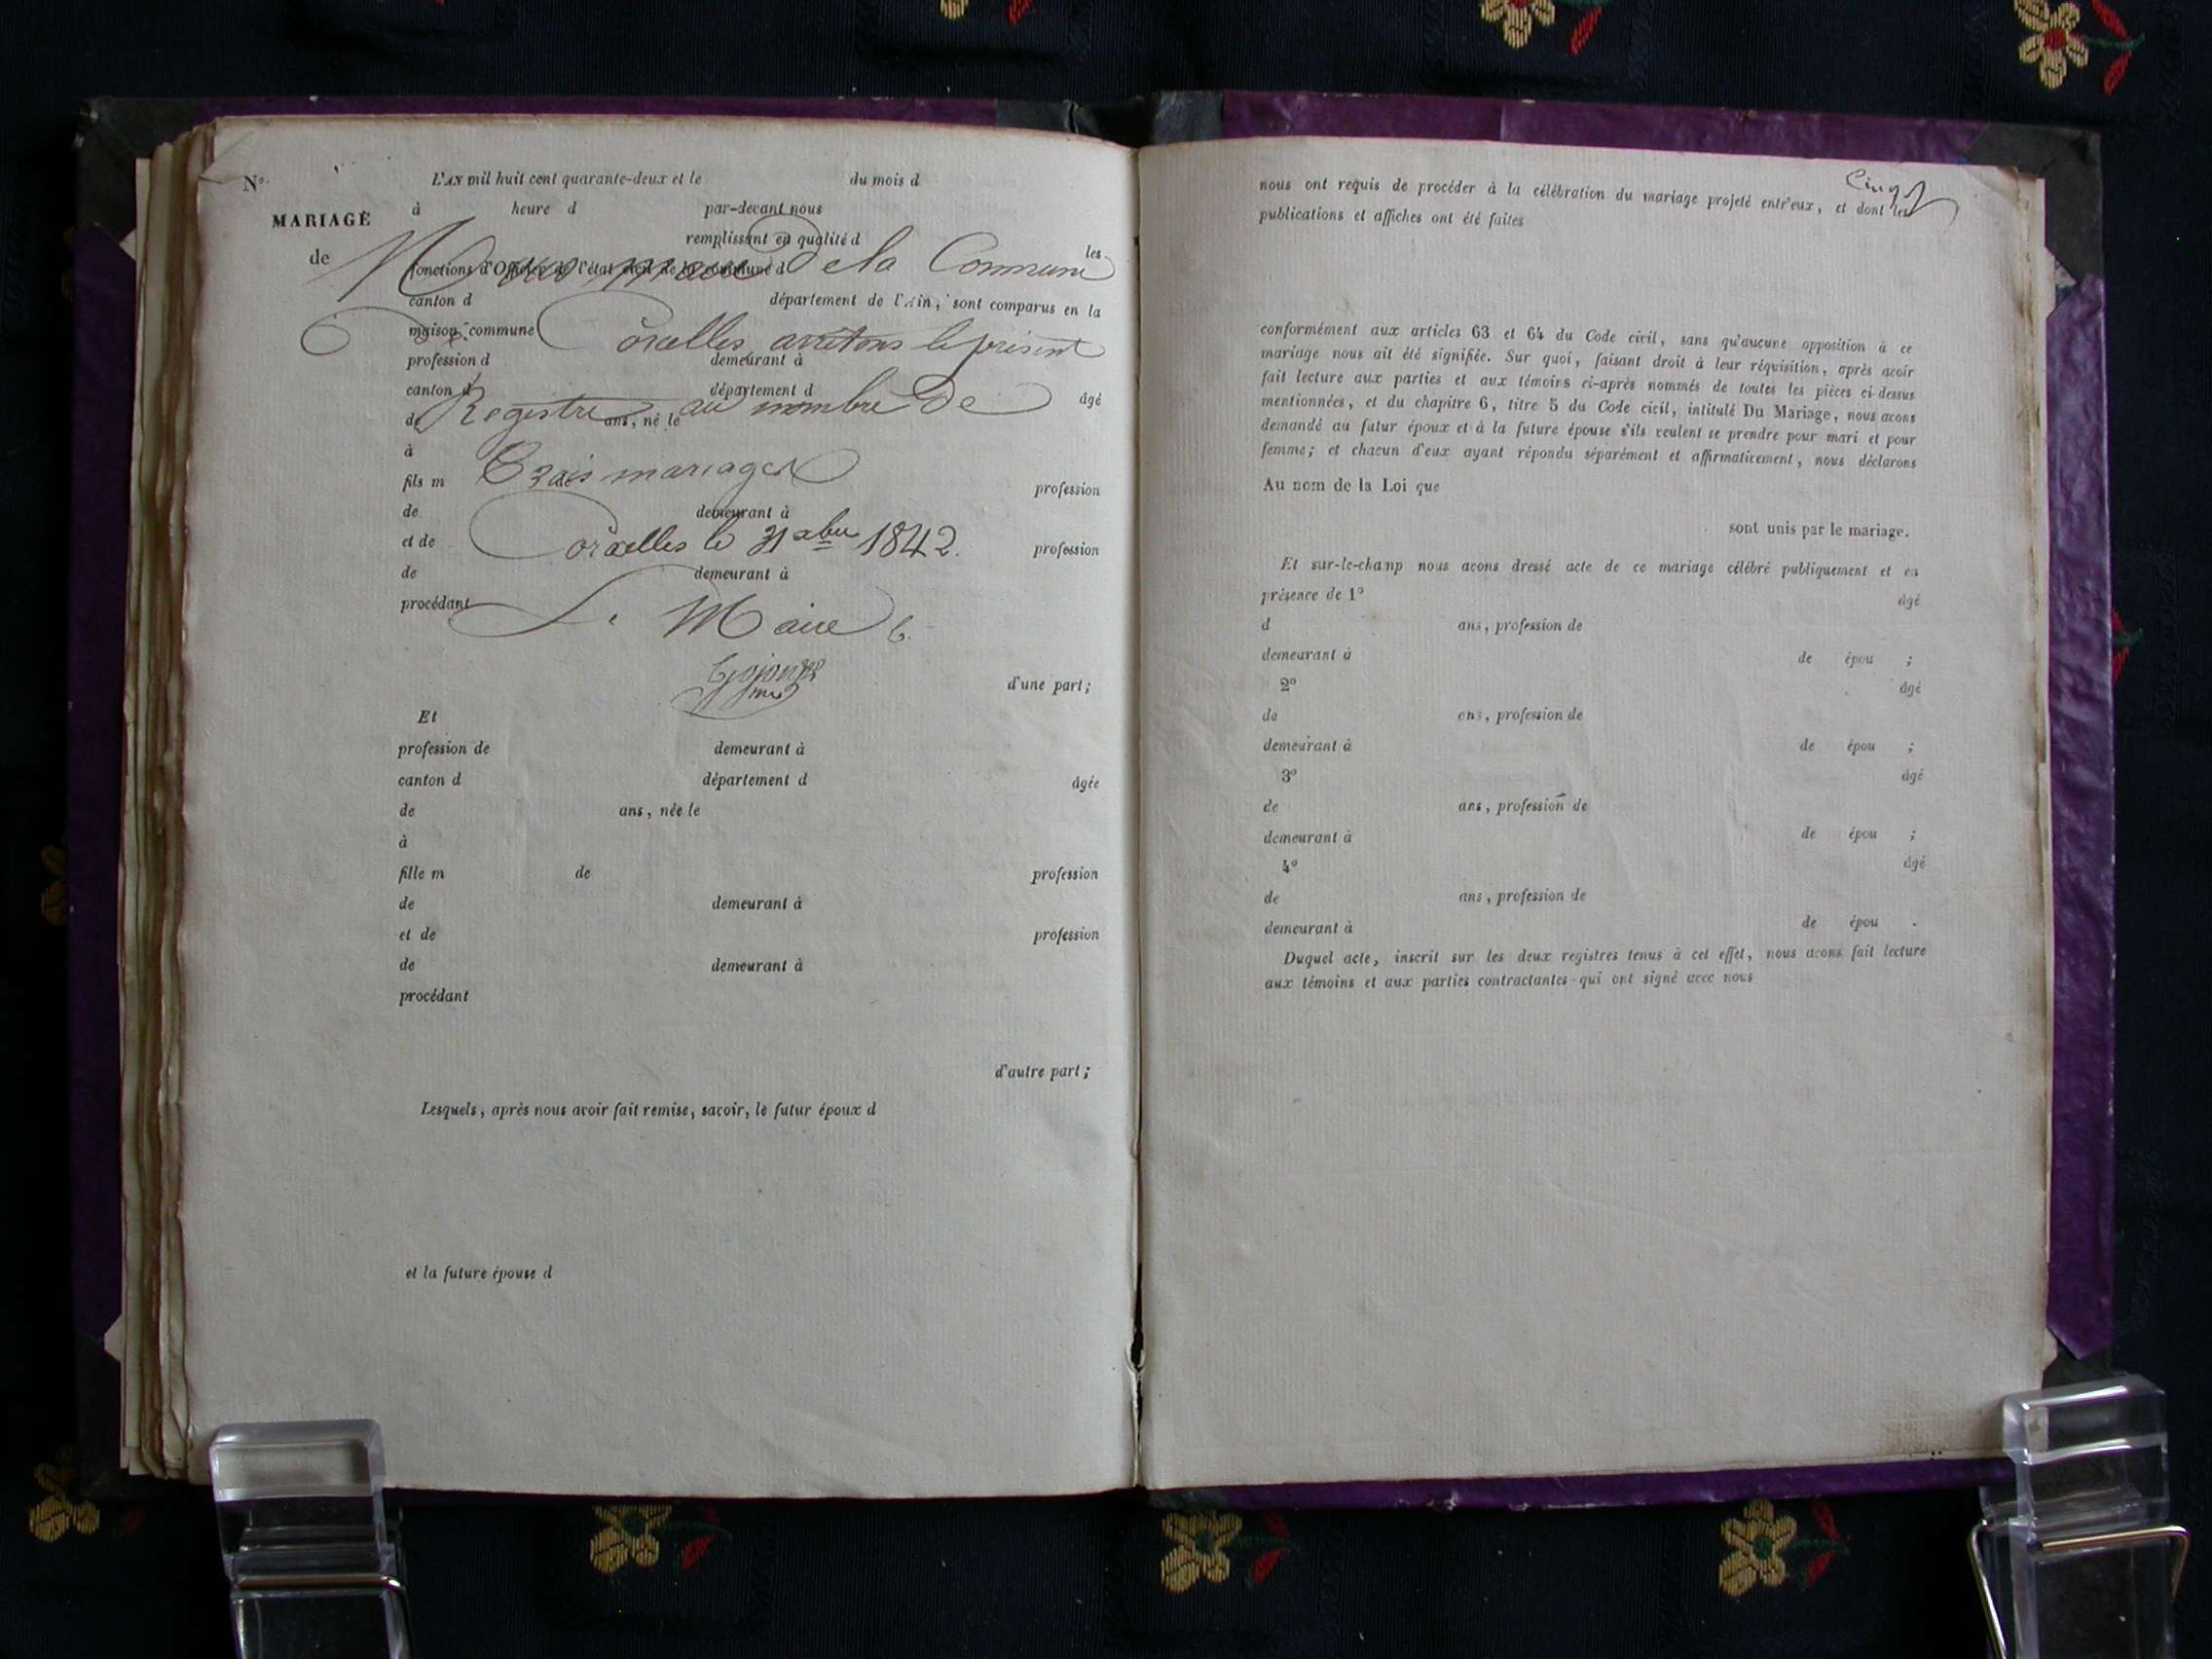 No.
L'AN mil huit cent quarante-deux et le du mois d
MARIAGE
à heure d par-devant nous
remplissant en qualité d les
de
fonctions d'Officier de l'état civil de la commune d
Nous maire De la Commune
canton d département de l'Ain, sont comparus en la
maison commune
De Corcelles arretons le présent
profession d demeurant à
canton d département d âgé
Registre au nombre De
de ans, né le
à
Trois mariages
fils m de profession
de demeurant à
Corcelles le 31 xbre 1842.
et de profession
de demeurant à
procédant
Le Maire
d'une part;
Et
profession de demeurant à
canton d département d âgée
de ans, née le
à
fille m de profession
de demeurant à
et de profession
de demeurant à
procédant
d'autre part;
Lesquels, après nous avoir fait remise, savoir, le futur époux d
et la future épouse d
Cinq
nous ont requis de procéder à la célébration du mariage projeté entr'eux, et dont les
publications et affiches ont été faites
conformément aux articles 63 et 64 du Code civil, sans qu'aucune opposition à ce
mariage nous ait été signifiée. Sur quoi, faisant droit à leur réquisition, après avoir
fait lecture aux parties et aux témoins ci-après nommés de toutes les pièces ci-dessus
mentionnées, et du chapitre 6, titre 5 du Code civil, intitulé Du Mariage, nous avons
demandé au futur époux et à la future épouse s'ils veulent se prendre pour mari et pour
femme; et chacun d'eux ayant répondu séparément et affirmativement, nous déclarons
Au nom de la Loi que
sont unis par le mariage.
Et sur-le-champ nous avons dressé acte de ce mariage célébré publiquement et en
présence de 1° âgé
d ans, profession de
demeurant à de épou ;
2° âgé
de ans, profession de
demeurant à de épou ;
3° âgé
de ans, profession de
demeurant à de épou ;
4° âgé
de ans, profession de
demeurant à de épou .
Duquel acte, inscrit sur les deux registres tenus à cet effet, nous avons fait lecture
aux témoins et aux parties contractantes qui ont signé avec nous